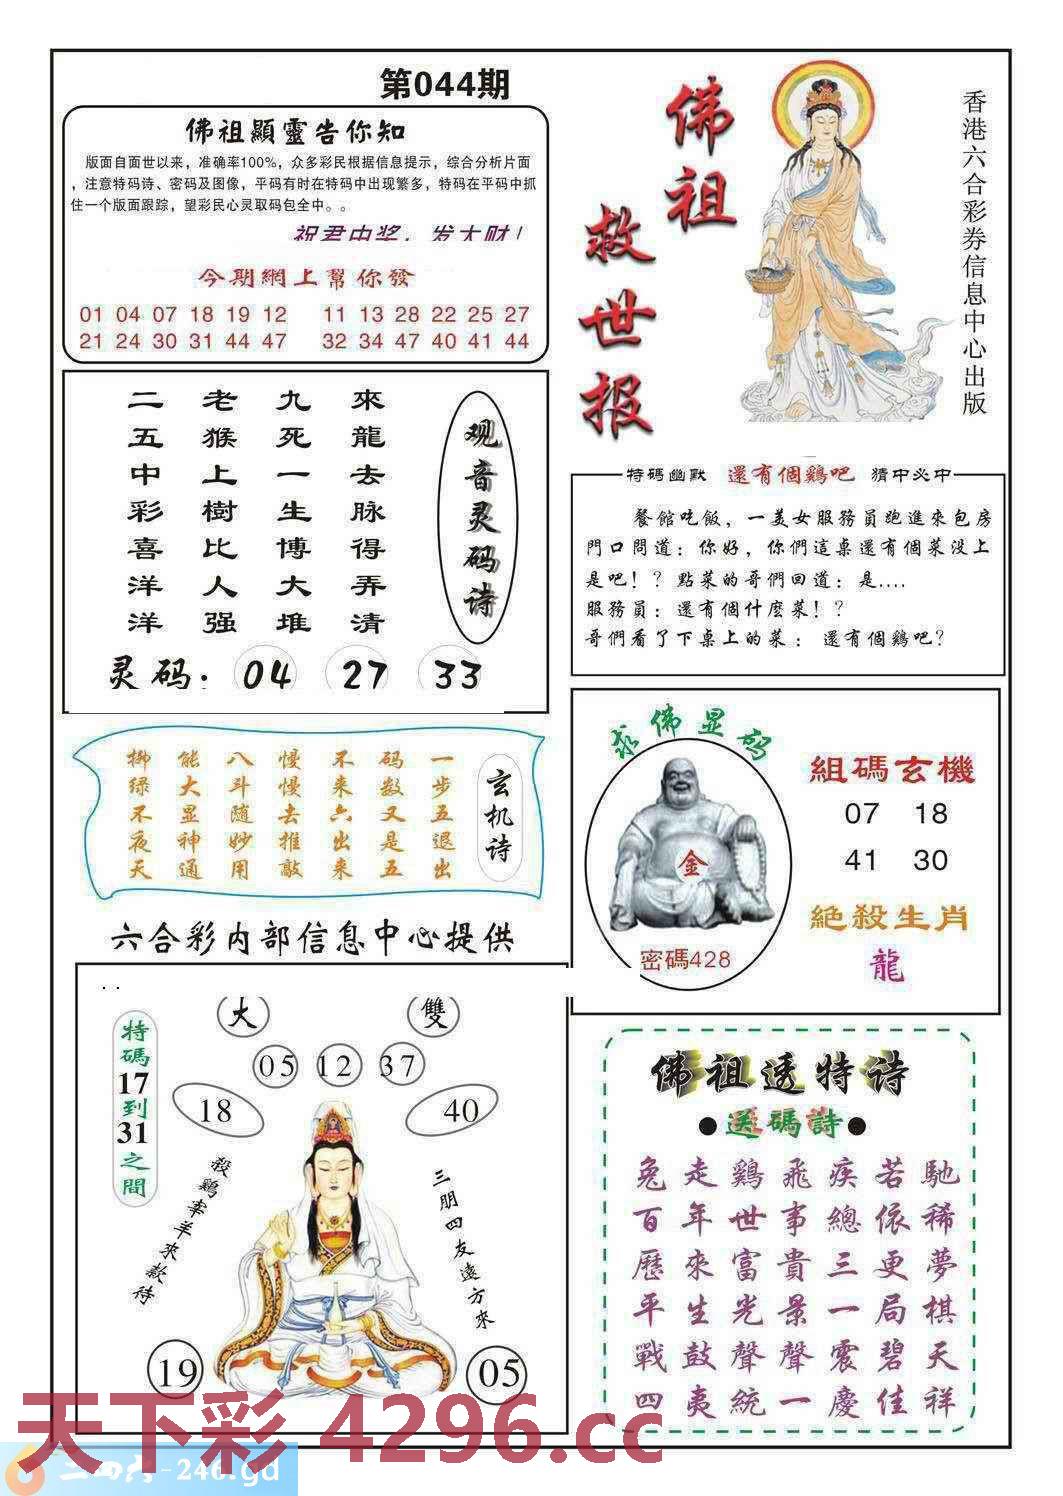 第044期
佛祖顯靈告你知
版面自面世以来，准确率100%，众多彩民根据信息提示，综合分析片面
，注意特码诗、密码及图像，平码有时在特码中出现繁多，特码在平码中抓
住一个版面跟踪，望彩民心灵取码包全中。。
祝君中奖，发大财！
今期網上幫你發
01 04 07 18 19 12 11 13 28 22 25 27
21 24 30 31 44 47 32 34 47 40 41 44
佛祖
救世报
香港六合彩券信息中心出版
观音灵码诗
來龍去脉得弄清
九死一生博大堆
老猴上樹比人强
二五中彩喜洋洋
灵码：04 27 33
特碼幽默 還有個鷄吧 猜中必中
餐館吃飯，一美女服務員跑進來包房
門口問道：你好，你們這桌還有個菜没上
是吧！？點菜的哥們回道：是....
服務員：還有個什麽菜！？
哥們看了下桌上的菜：還有個鷄吧？
玄机诗
一步五退出
码数又是五
不来六出来
慢慢去推敲
八斗随妙用
能大显神通
柳绿不夜天
求佛显码
金
密碼428
組碼玄機
07 18
41 30
絕殺生肖
龍
六合彩内部信息中心提供
. .
大 雙
05 12 37
18 40
特碼17到31之間
殺鷄宰羊來款待
三朋四友遠方來
19 05
佛祖透特诗
●送碼詩●
兔走鷄飛疾若馳
百年世事總依稀
歷來富貴三更夢
平生光景一局棋
戰鼓聲聲震碧天
四夷統一慶佳祥
天下彩 4296.cc
二四六-246.gd